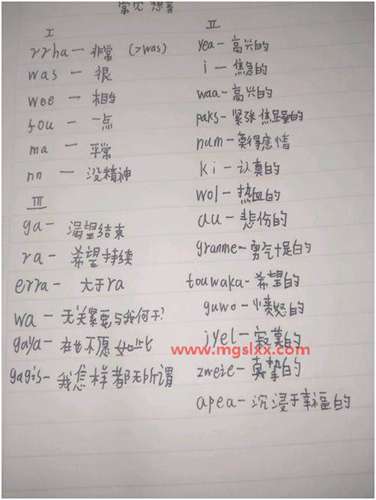 常见想音
I
rrha — 非常 (>was)
was — 很
wee — 相当
fou — 一点
ma — 平常
nn — 没精神
III
ga — 渴望结束
ra — 希望持续
erra — 大于ra
wa — 无关紧要与我何干?
gaya — 在也不愿如此
gagis — 我怎样都无所谓
II
yea — 高兴的
i — 焦急的
waa — 高兴的
paks — 紧张焦虑的
num — 莫得感情
ki — 认真的
wol — 热血的
au — 悲伤的
granme — 勇气十足的
touwaka — 希望的
guwo — 愤怒的
jyel — 寂寞的
www.mgslxx.com
zweie — 真挚的
apea — 沉浸于幸福的